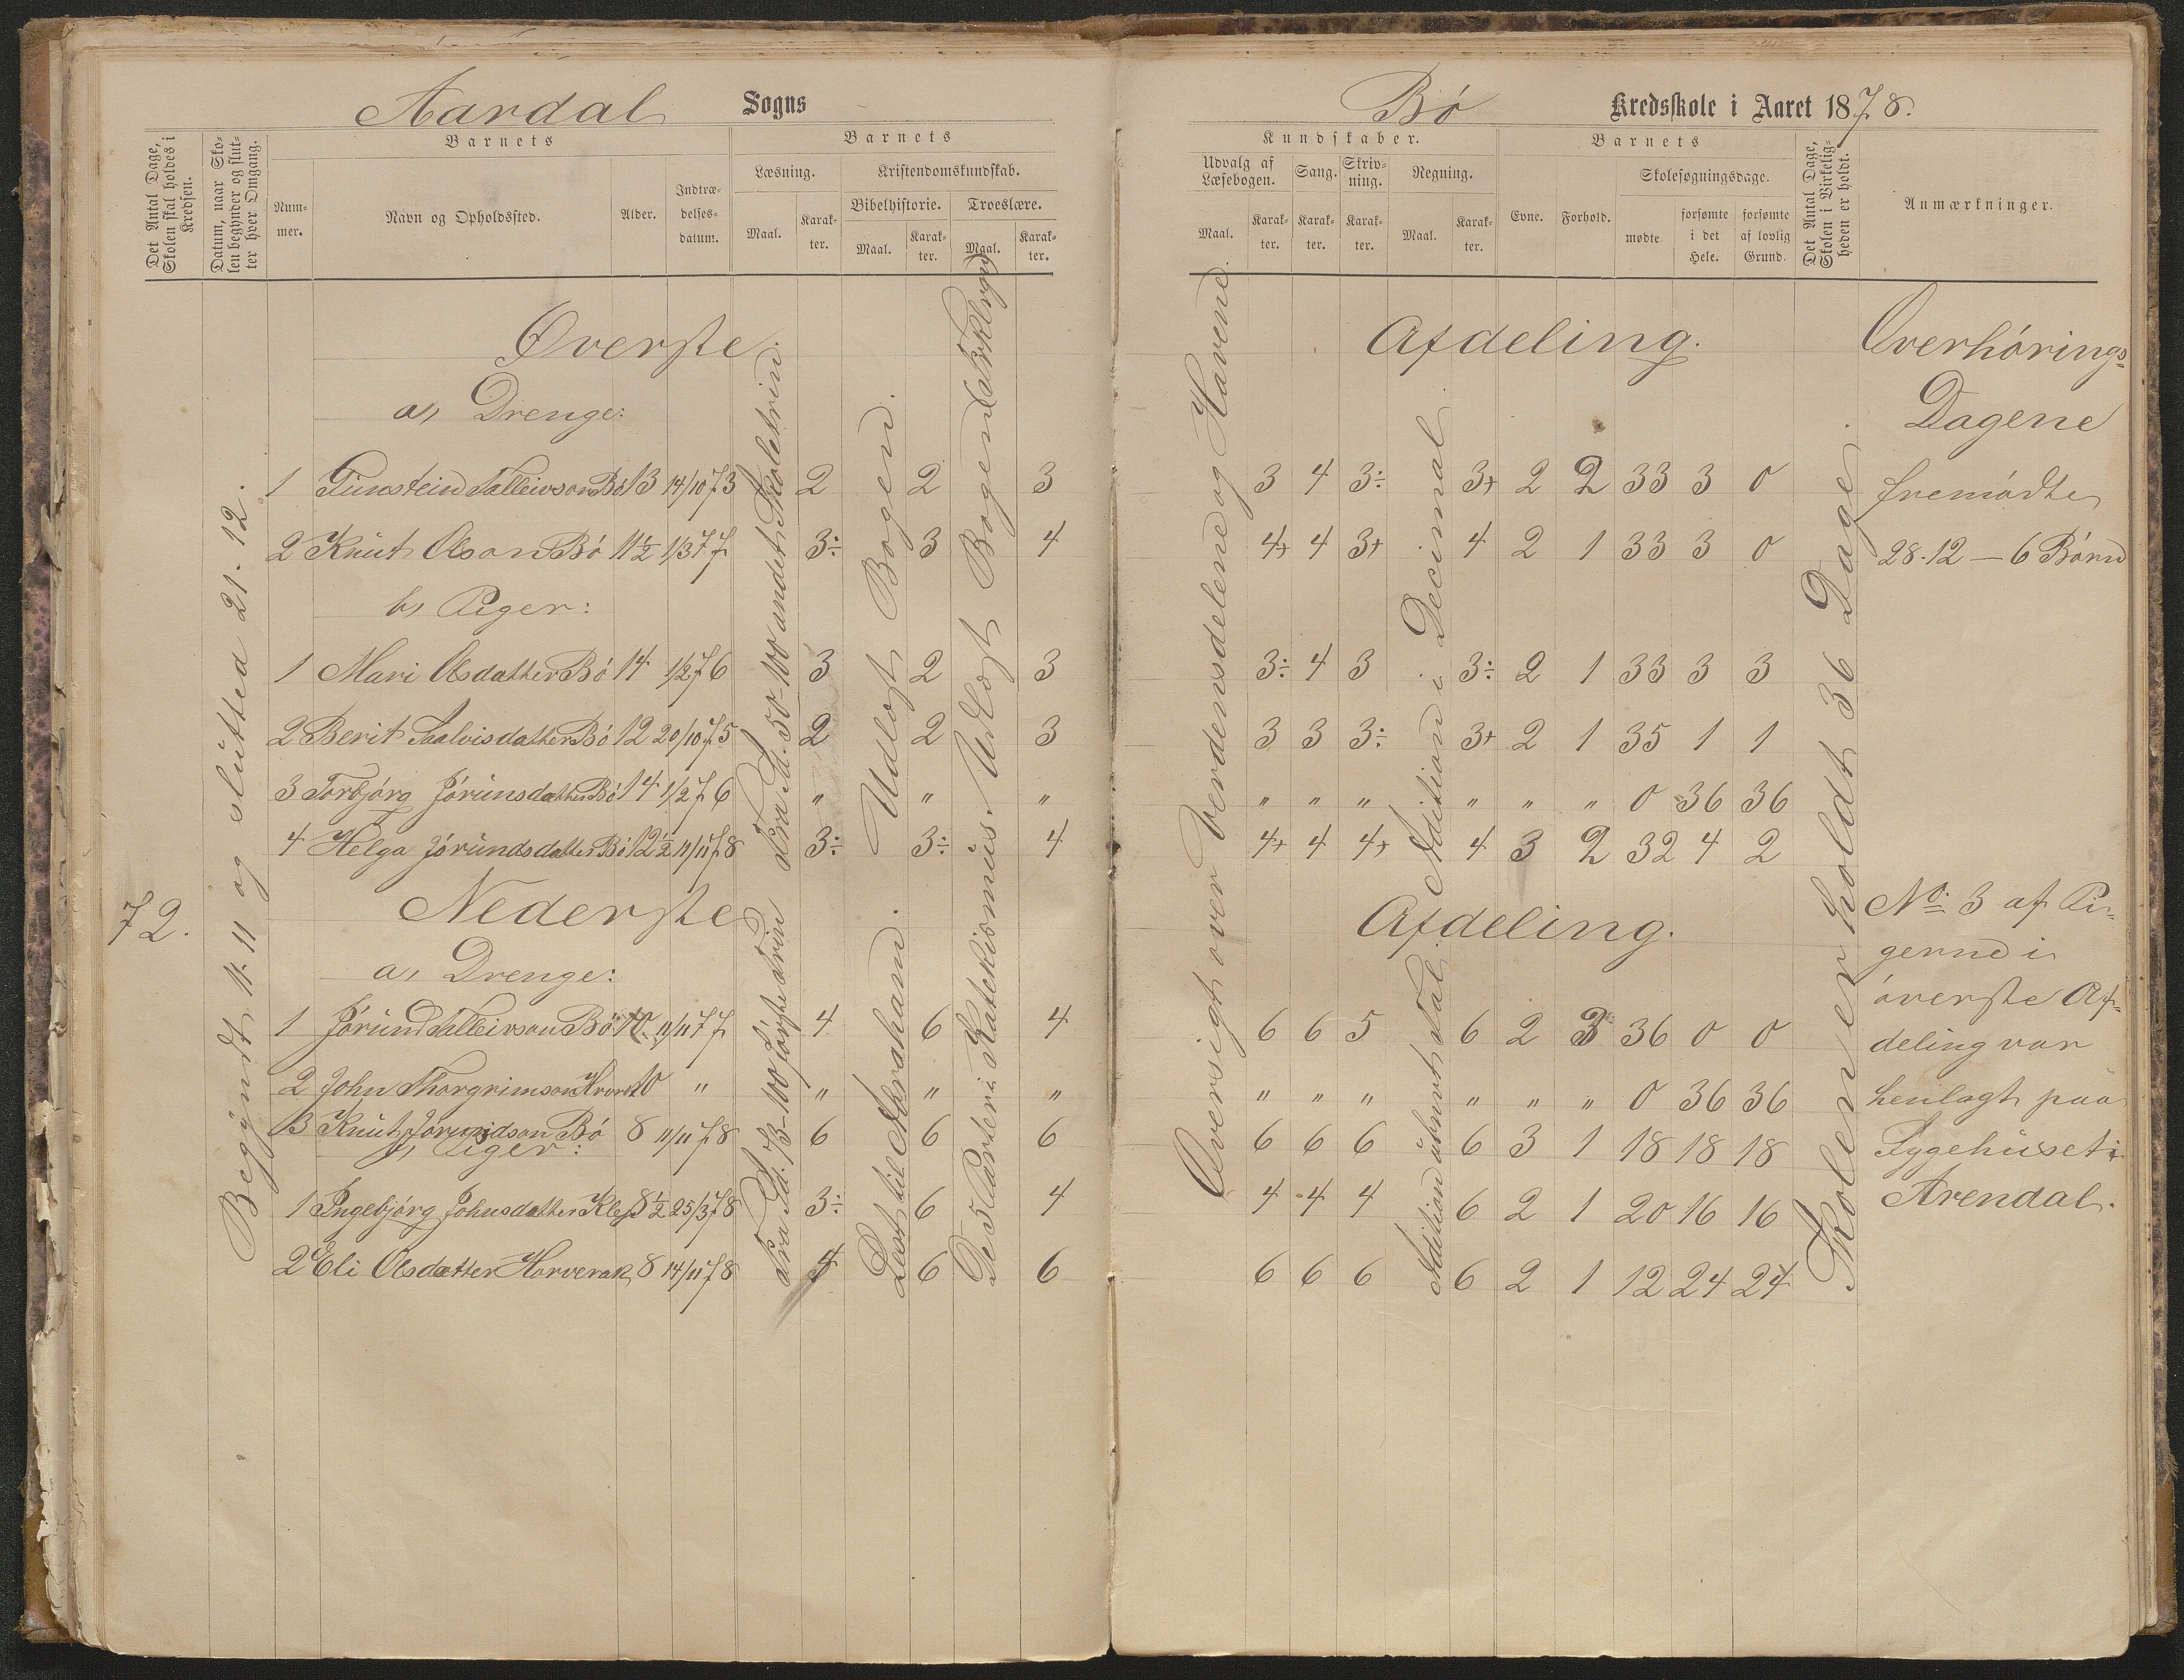 Aardal Sogns
Det Antal Dage, Skolen skal holdes i Kredsen.
Datum, naar Skolen begynder og slutter hver Omgang.
Barnets
Nummer.
Navn og Opholdssted.
Alder.
Indtrædelsesdatum.
Barnets
Læsning.
Kristendomskundskab.
Bibelhistorie.
Troeslære.
Maal. Karakter. Maal. Karakter. Maal. Karakter.
72.
Begyndt 11.11 og slutted 21.12.
Øverste
a, Drenge:
1 Gunstein Salleivson Bø 13 14/10 73 2 2 3
2 Knut Olson Bø 11½ 1/3 77 3÷ 3 4
b, Piger:
1 Mari Olsdatter Bø 14 1/2 76 3 2 3
2 Berit Saalvisdatter Bø 12 20/10 75 2 2 3
3 Torbjørg Jørunsdatter Bø 14 1/2 76 " " "
4 Helga Jørundsdatter Bø 12½ 11/11 78 3÷ 3÷ 4
Nederste
a, Drenge:
1 Jørund Salleivson Bø 10 11/11 77 4 6 4
2 John Thorgrimson 10 " " " "
3 Knut Jørundson Bø 8 11/11 78 6 6 6
b, Piger:
1 Ingebjørg Johnsdatter Klep 8½ 25/3 78 3÷ 6 4
2 Eli Olsdatter Horverak 8 14/11 78 4 6 6
Fra Sd. 50-100 andet Skoletrin.
Fra Sd. 73-100 første Trin
Udlagt Bogen.
Læst til Abrahami.
Udlagt Bogen
De 5 Parter i Katekismus.
Bø Kredsskole i Aaret 1878.
Kundskaber.
Udvalg af Læsebogen.
Sang.
Skrivning.
Regning.
Maal. Karakter. Karakter. Karakter. Maal. Karakter.
Barnets
Evne. Forhold.
Skolesøgningsdage.
mødte
forsømte i det Hele.
forsømte af lovlig Grund.
Det Antal Dage, Skolen i Virkeligheden er holdt.
Anmærkninger.
Oversigt over Verdensdelene og Havene.
Addition i Decimal
Addition ubnvt. Tal.
Skolen er holdt 36 Dage.
Afdeling.
3 4 3÷ 3+ 2 2 33 3 0
4+ 4 3+ 4 2 1 33 3 0
3÷ 4 3 3÷ 2 1 33 3 3
3 3 3÷ 3+ 2 1 35 1 1
" " " " " " 0 36 36
4+ 4 4+ 4 3 2 32 4 2
Afdeling.
6 6 5 6 2 3 36 0 0
" " " " " " 0 36 36
6 6 6 6 3 1 18 18 18
4 4 4 6 2 1 20 16 16
6 6 6 6 2 1 12 24 24
Overhørings-
Dagene
fremødte
28.12 — 6 Børn
No. 3 af Pi-
gerne i
øverste Af-
deling var
henlagt paa
Sygehuset i
Arendal.